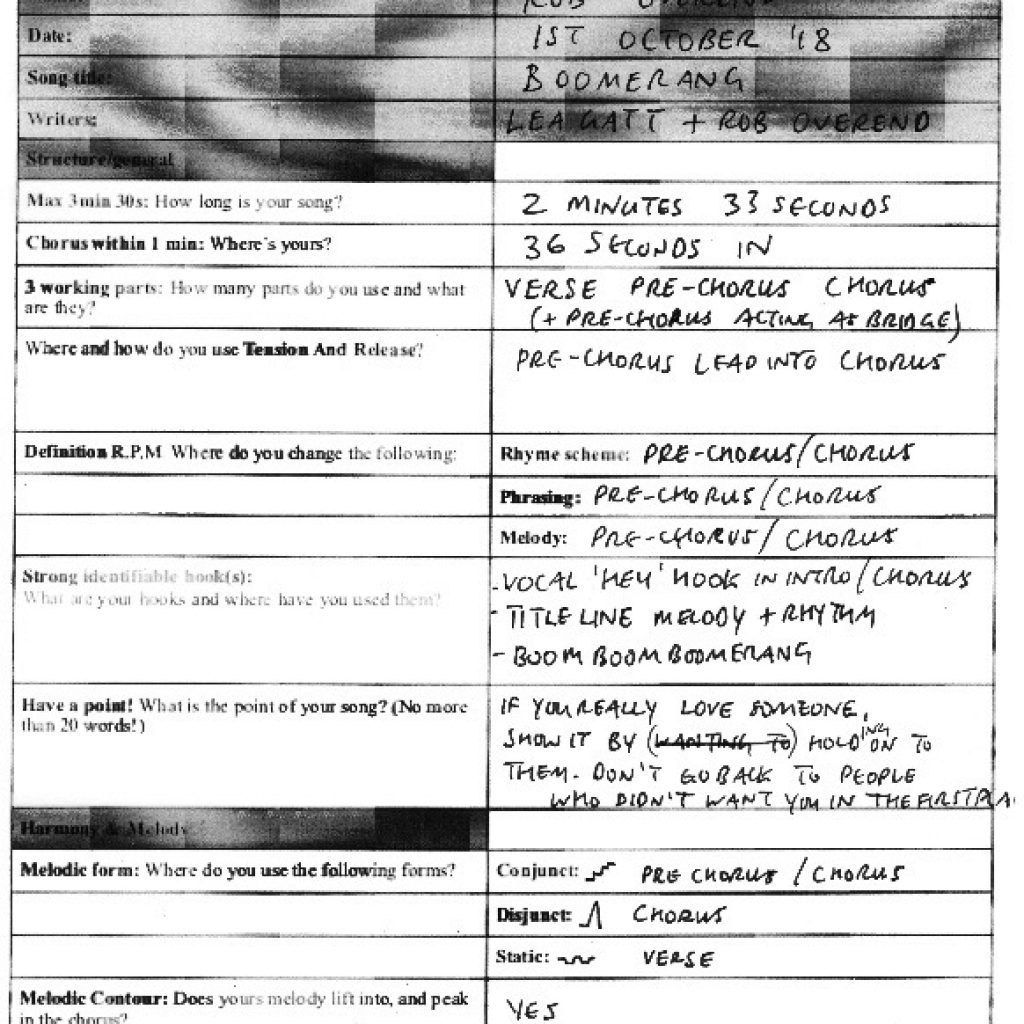 ROB OVEREND
Date: 1ST OCTOBER '18
Song title: BOOMERANG
Writers: LEA GATT + ROB OVEREND
Structure/general
Max 3min 30s: How long is your song? 2 MINUTES 33 SECONDS
Chorus within 1 min: Where's yours? 36 SECONDS IN
3 working parts: How many parts do you use and what
are they?
VERSE PRE-CHORUS CHORUS
(+ PRE-CHORUS ACTING AS BRIDGE)
Where and how do you use Tension And Release? PRE-CHORUS LEAD INTO CHORUS
Definition R.P.M Where do you change the following: Rhyme scheme: PRE-CHORUS/CHORUS
Phrasing: PRE-CHORUS/CHORUS
Melody: PRE-CHORUS/CHORUS
Strong identifiable hook(s):
What are your hooks and where have you used them?
- VOCAL 'HEY' HOOK IN INTRO/CHORUS
- TITLE LINE MELODY + RHYTHM
- BOOM BOOM BOOMERANG
Have a point! What is the point of your song? (No more
than 20 words!)
IF YOU REALLY LOVE SOMEONE,
SHOW IT BY (WANTING TO) HOLDING ON TO
THEM. DON'T GO BACK TO PEOPLE
WHO DIDN'T WANT YOU IN THE FIRST PLA
Harmony & Melody
Melodic form: Where do you use the following forms? Conjunct: PRE CHORUS / CHORUS
Disjunct: CHORUS
Static: VERSE
Melodic Contour: Does yours melody lift into, and peak
in the chorus?
YES